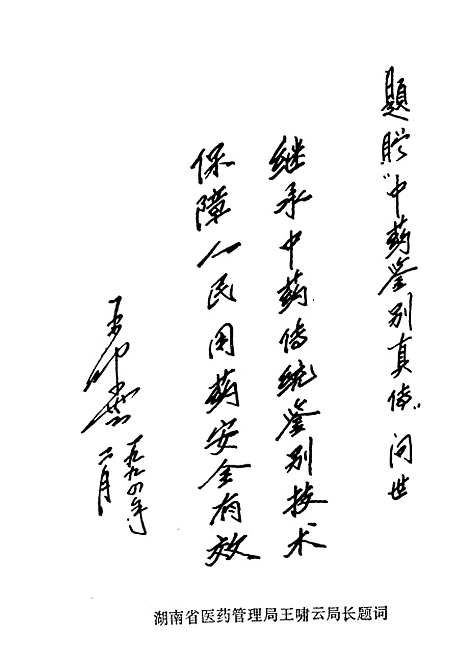 题贈“中药鉴别真传”问世
继承中药传统鉴别技术
保障人民用药安全有效
王啸云
一九九四年
六月
湖南省医药管理局王啸云局长题词